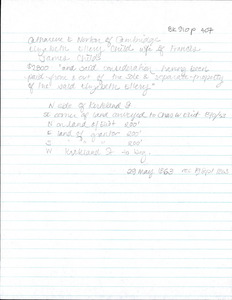 Bk 908 p 407
Catharine E Norton of Cambridge
Elizabeth Ellery Child wife of Francis
James Child
$7800 "and said consideration having been
paid from & out of the sole & separate property
of the said Elizabeth Ellery"
N side of Kirkland St
SE corner of land conveyed to
N on land of 200'
E land of grantor 200'
S " " " 200'
W Kirkland St to beg.
23 May 1863